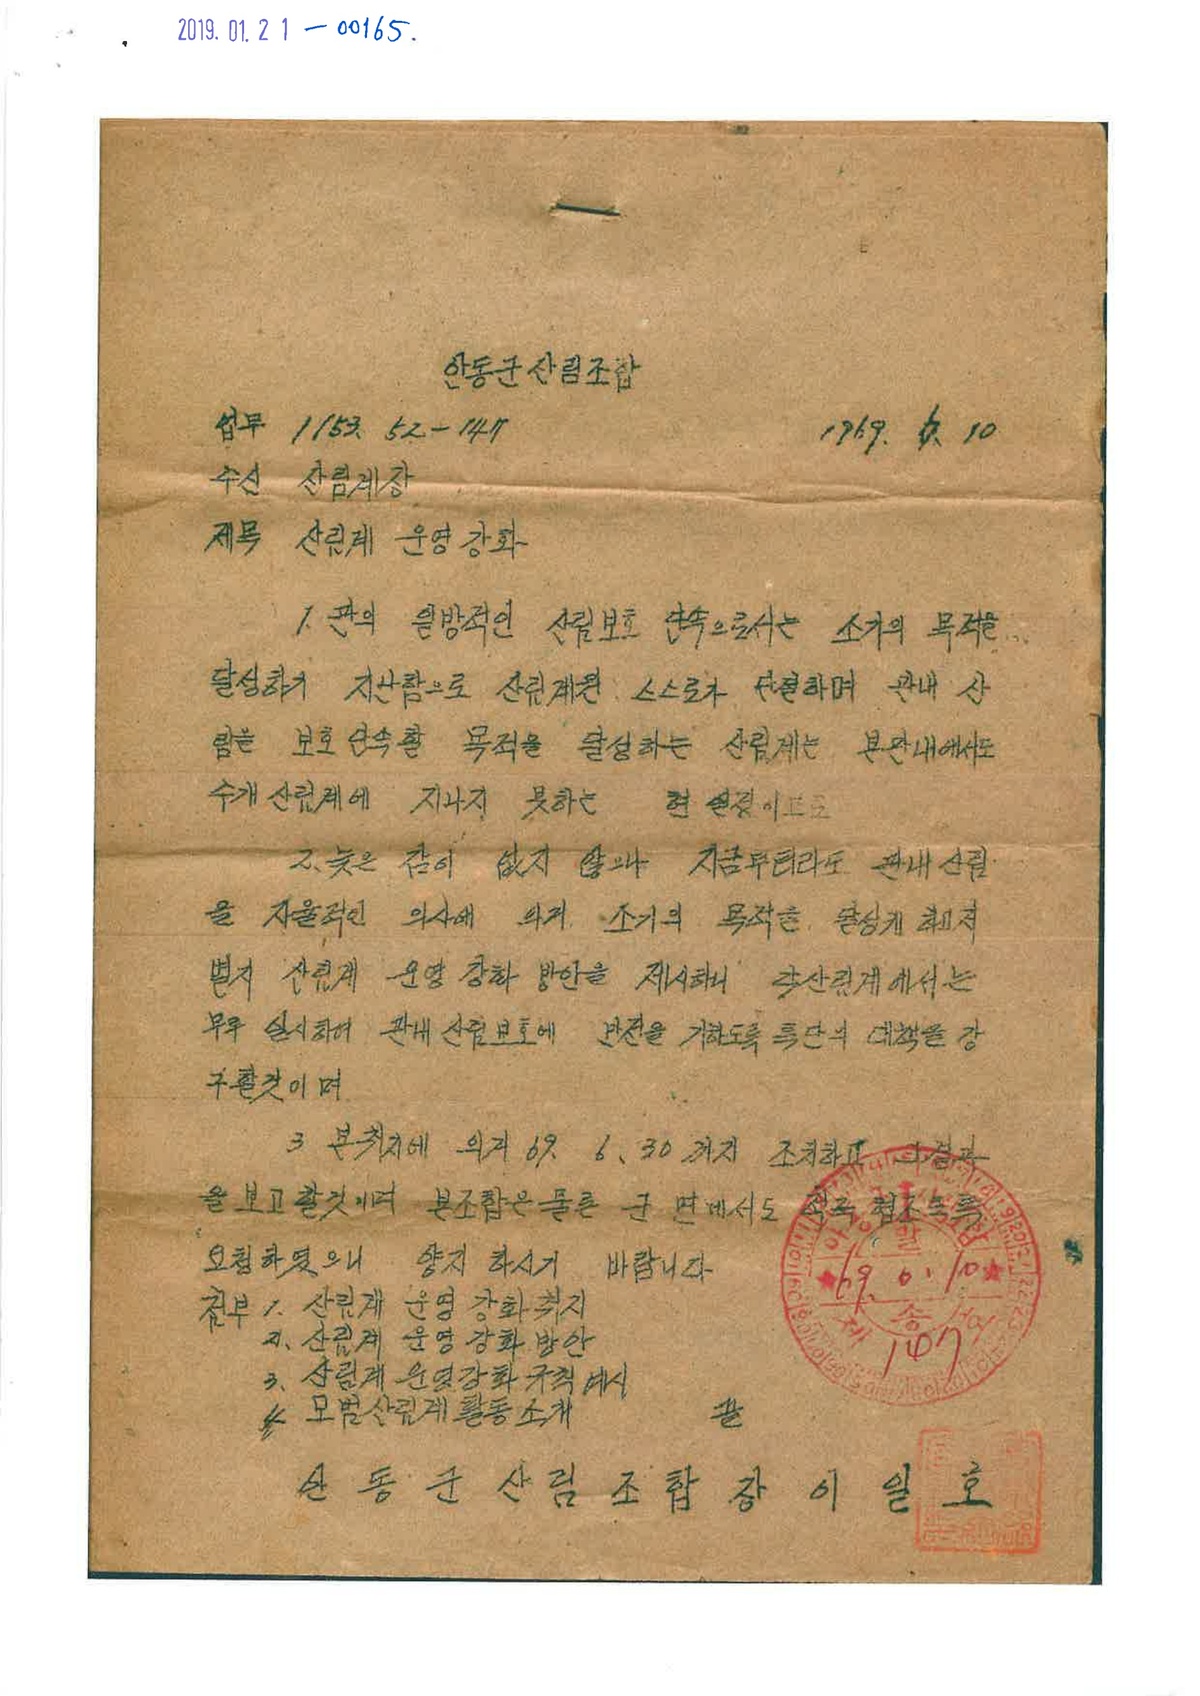 2019. 01. 21 - 00165.
안동군산림조합
업무 1153. 52-147 1969. 6. 10
수신 산림계장
제목 산림계 운영강화
1. 관의 일방적인 산림보호 단속으로서는 소기의 목적을
달성하기 지난함으로 산림계원 스스로가 단결하며 관내 산
림을 보호단속할 목적을 달성하는 산림계는 본관내에서도
수개산림계에 지나지 못하는 현 실정이므로
2. 늦은 감이 없지 않으나 지금부터라도 관내산림
을 자율적인 의사에 의거 소기의 목적을 달성케 하고저
별지 산림계 운영 강화 방안을 제시하니 각산림계에서는
실시하여 관내산림보호에 만전을 기하도록 특단의 대책을 강
구할것이며
3 본취지에 의거 69. 6. 30 까지 조치하고 그결과
을 보고할것이며 본조합은 물론 군 면에서도 적극 협조토록
요청하였으니 양지 하시기 바랍니다
첨부 1. 산림계 운영 강화취지
2. 산림계 운영 강화 방안
3. 산림계 운영강화 규칙예시
4 모범산림계활동소개 끝
안동군산림조합장 이일호
발
69. 6. 10
송
제 147